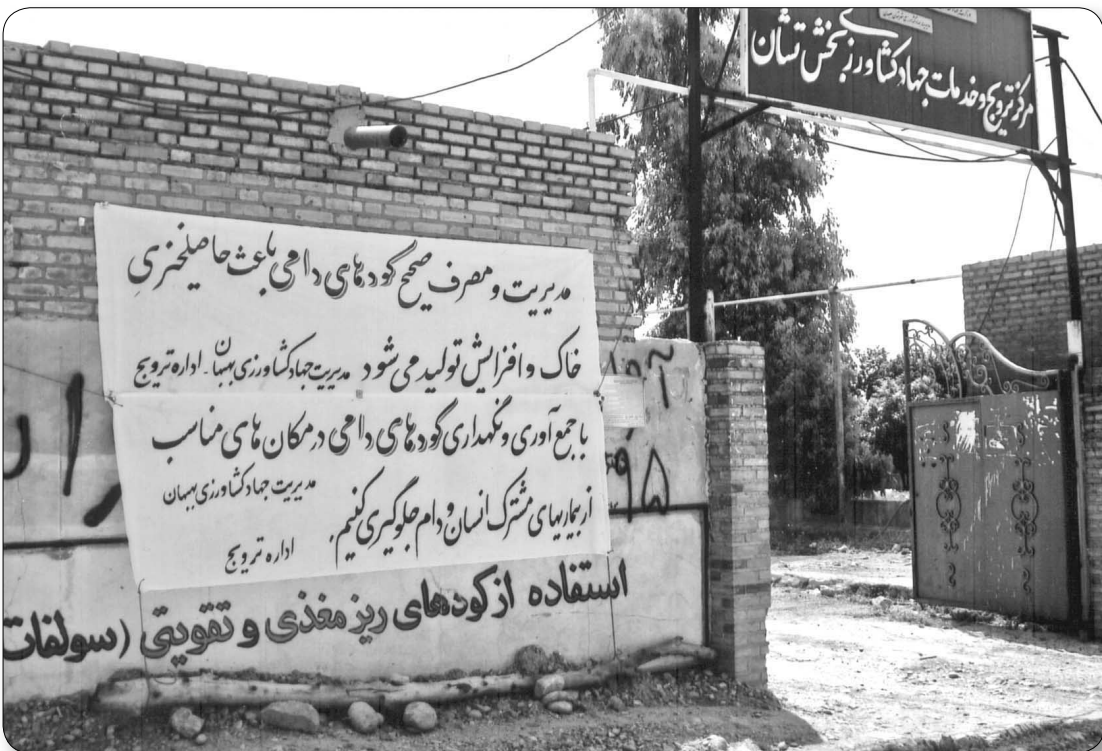 مرکز ترویج و خدمات جهاد کشاورزی بخش تشان
مدیریت و مصرف صحیح کودهای دامی باعث حاصلخیزی
خاک و افزایش تولید می شود مدیریت جهاد کشاورزی بهبهان - اداره ترویج
با جمع آوری و نگهداری کودهای دامی در مکان های مناسب
از بیماریهای مشترک انسان و دام جلوگیری کنیم.
مدیریت جهاد کشاورزی بهبهان
اداره ترویج
استفاده از کودهای ریز مغذی و تقویتی (سولفات